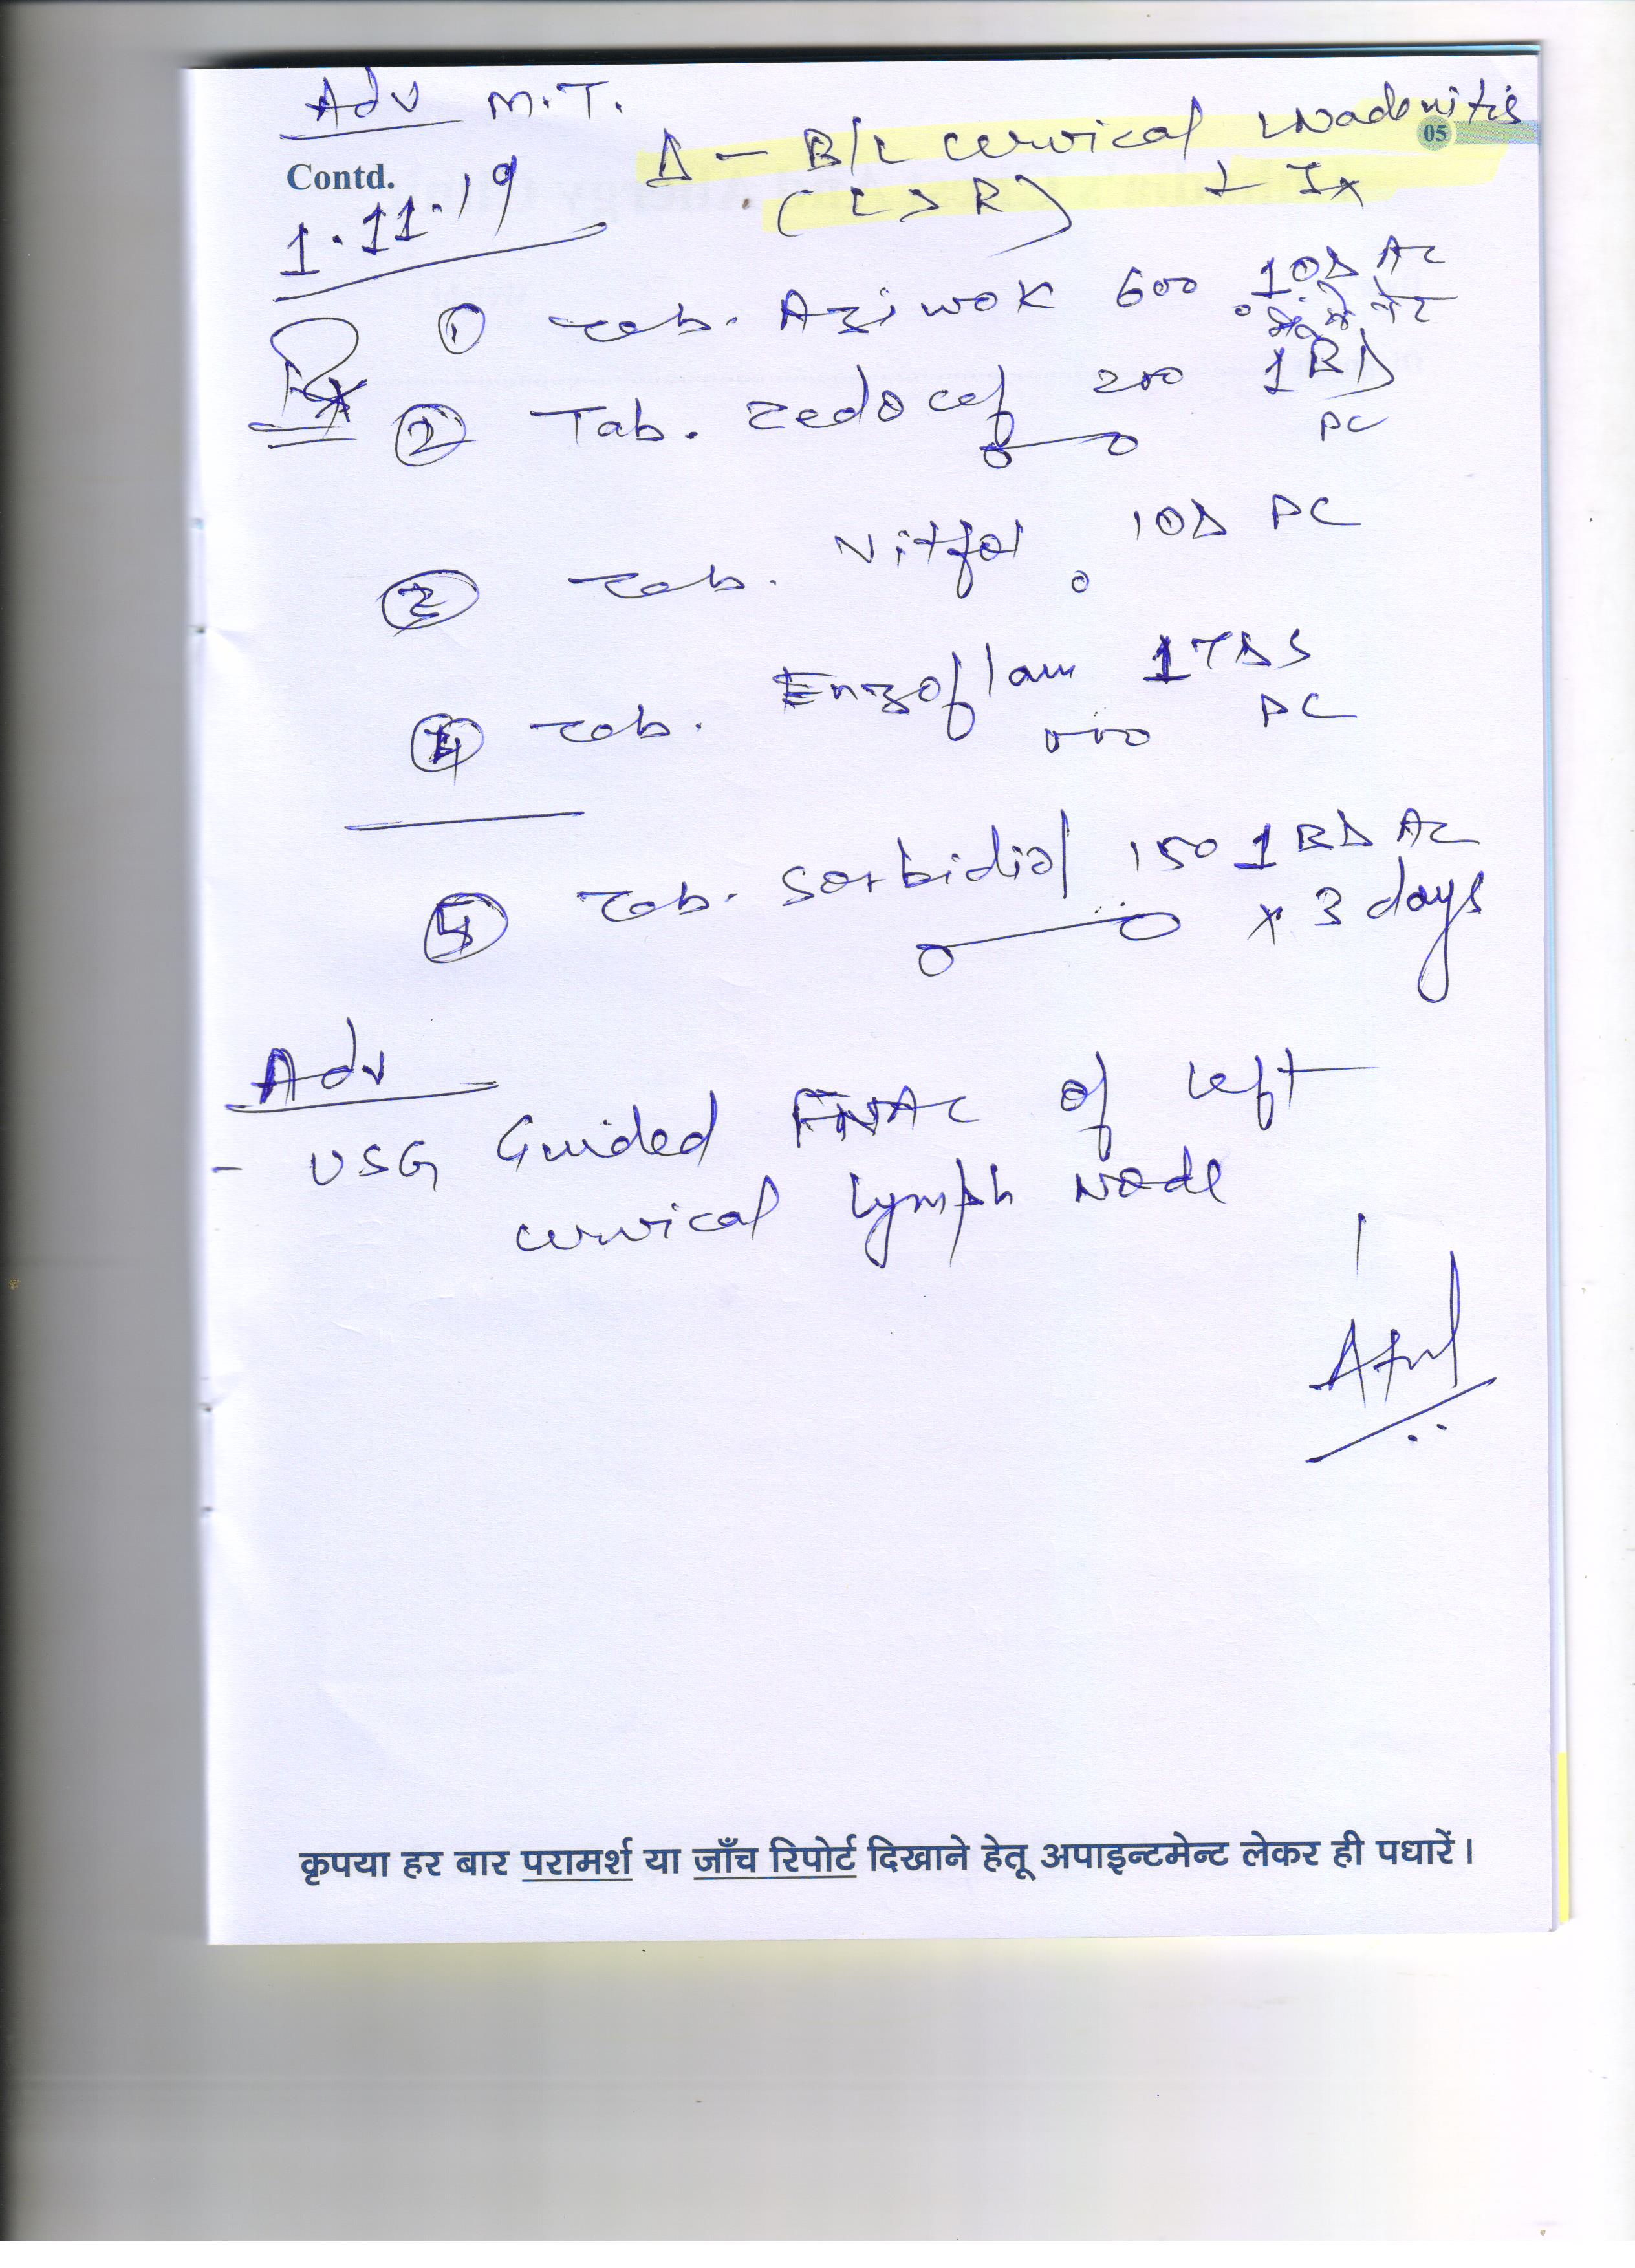 Adv M.T.
Δ - B/L cervical LNadenitis
05
Contd.
(L > R) + Ix
1.11.19
Rx
① Tab. Aziwok 600 1OD AC
② Tab. Zedocef 200 1BD
PC
③ Tab. Nitfol 1OD PC
④ Tab. Enzoflam 1TDS
PC
⑤ Tab. Sorbidiol 150 1BD AC
x 3 days
Adv
- USG Guided FNAC of Left
cervical lymph Node
Atul
कृपया हर बार परामर्श या जाँच रिपोर्ट दिखाने हेतू अपाइन्टमेन्ट लेकर ही पधारें।